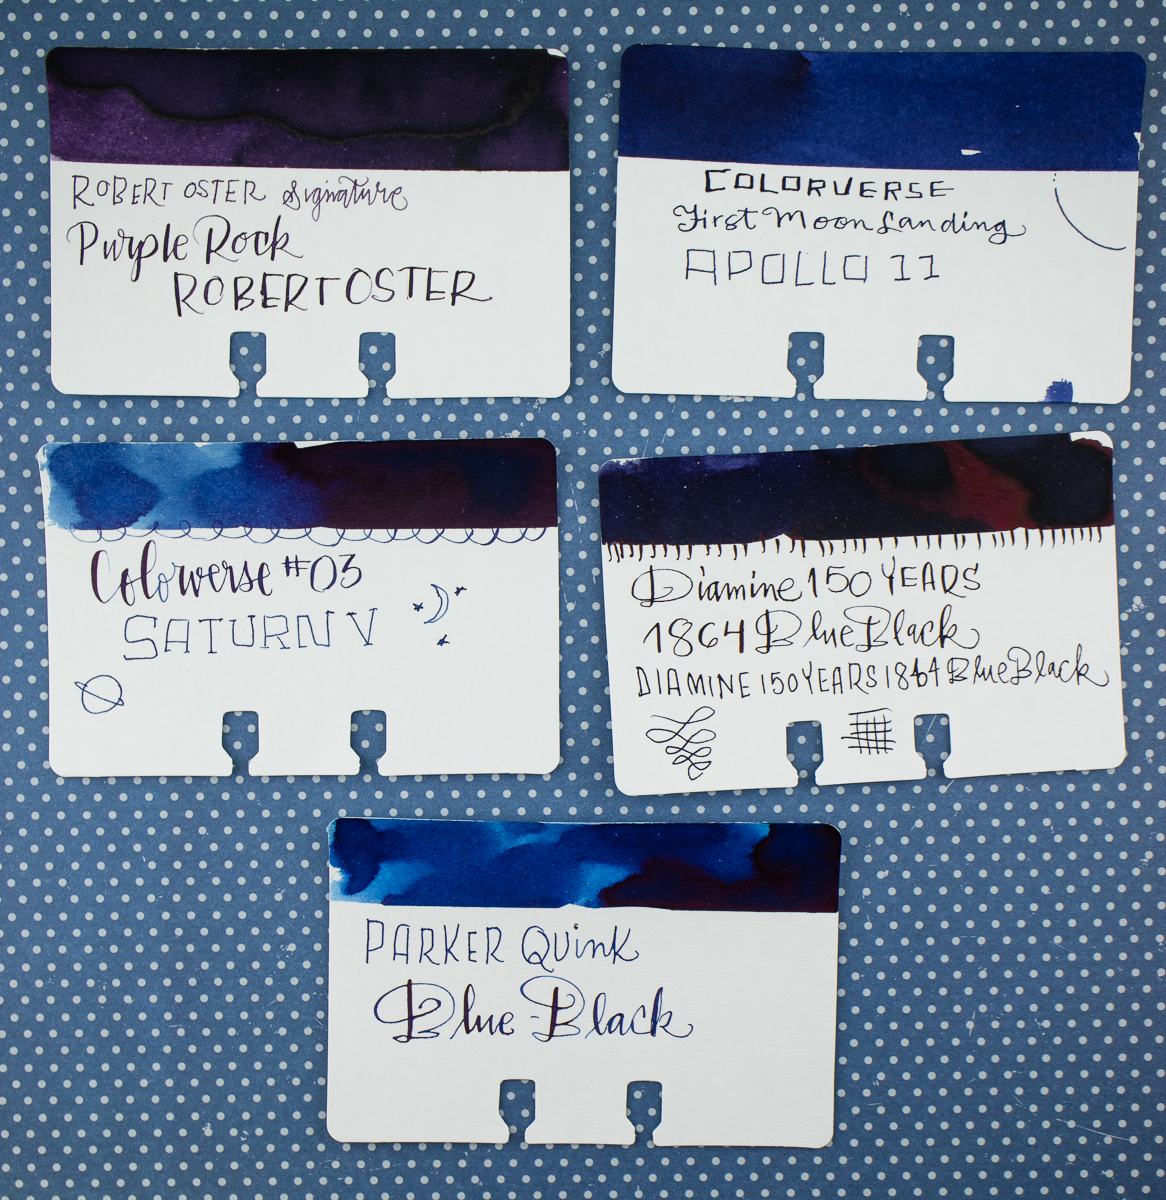 ROBERT OSTER Signature
Purple Rock
ROBERT OSTER
COLORVERSE
First Moon Landing
APOLLO 11
Colorverse #03
SATURN V
Diamine 150 YEARS
1864 Blue Black
DIAMINE 150 YEARS 1864 Blue Black
PARKER QUINK
Blue-Black